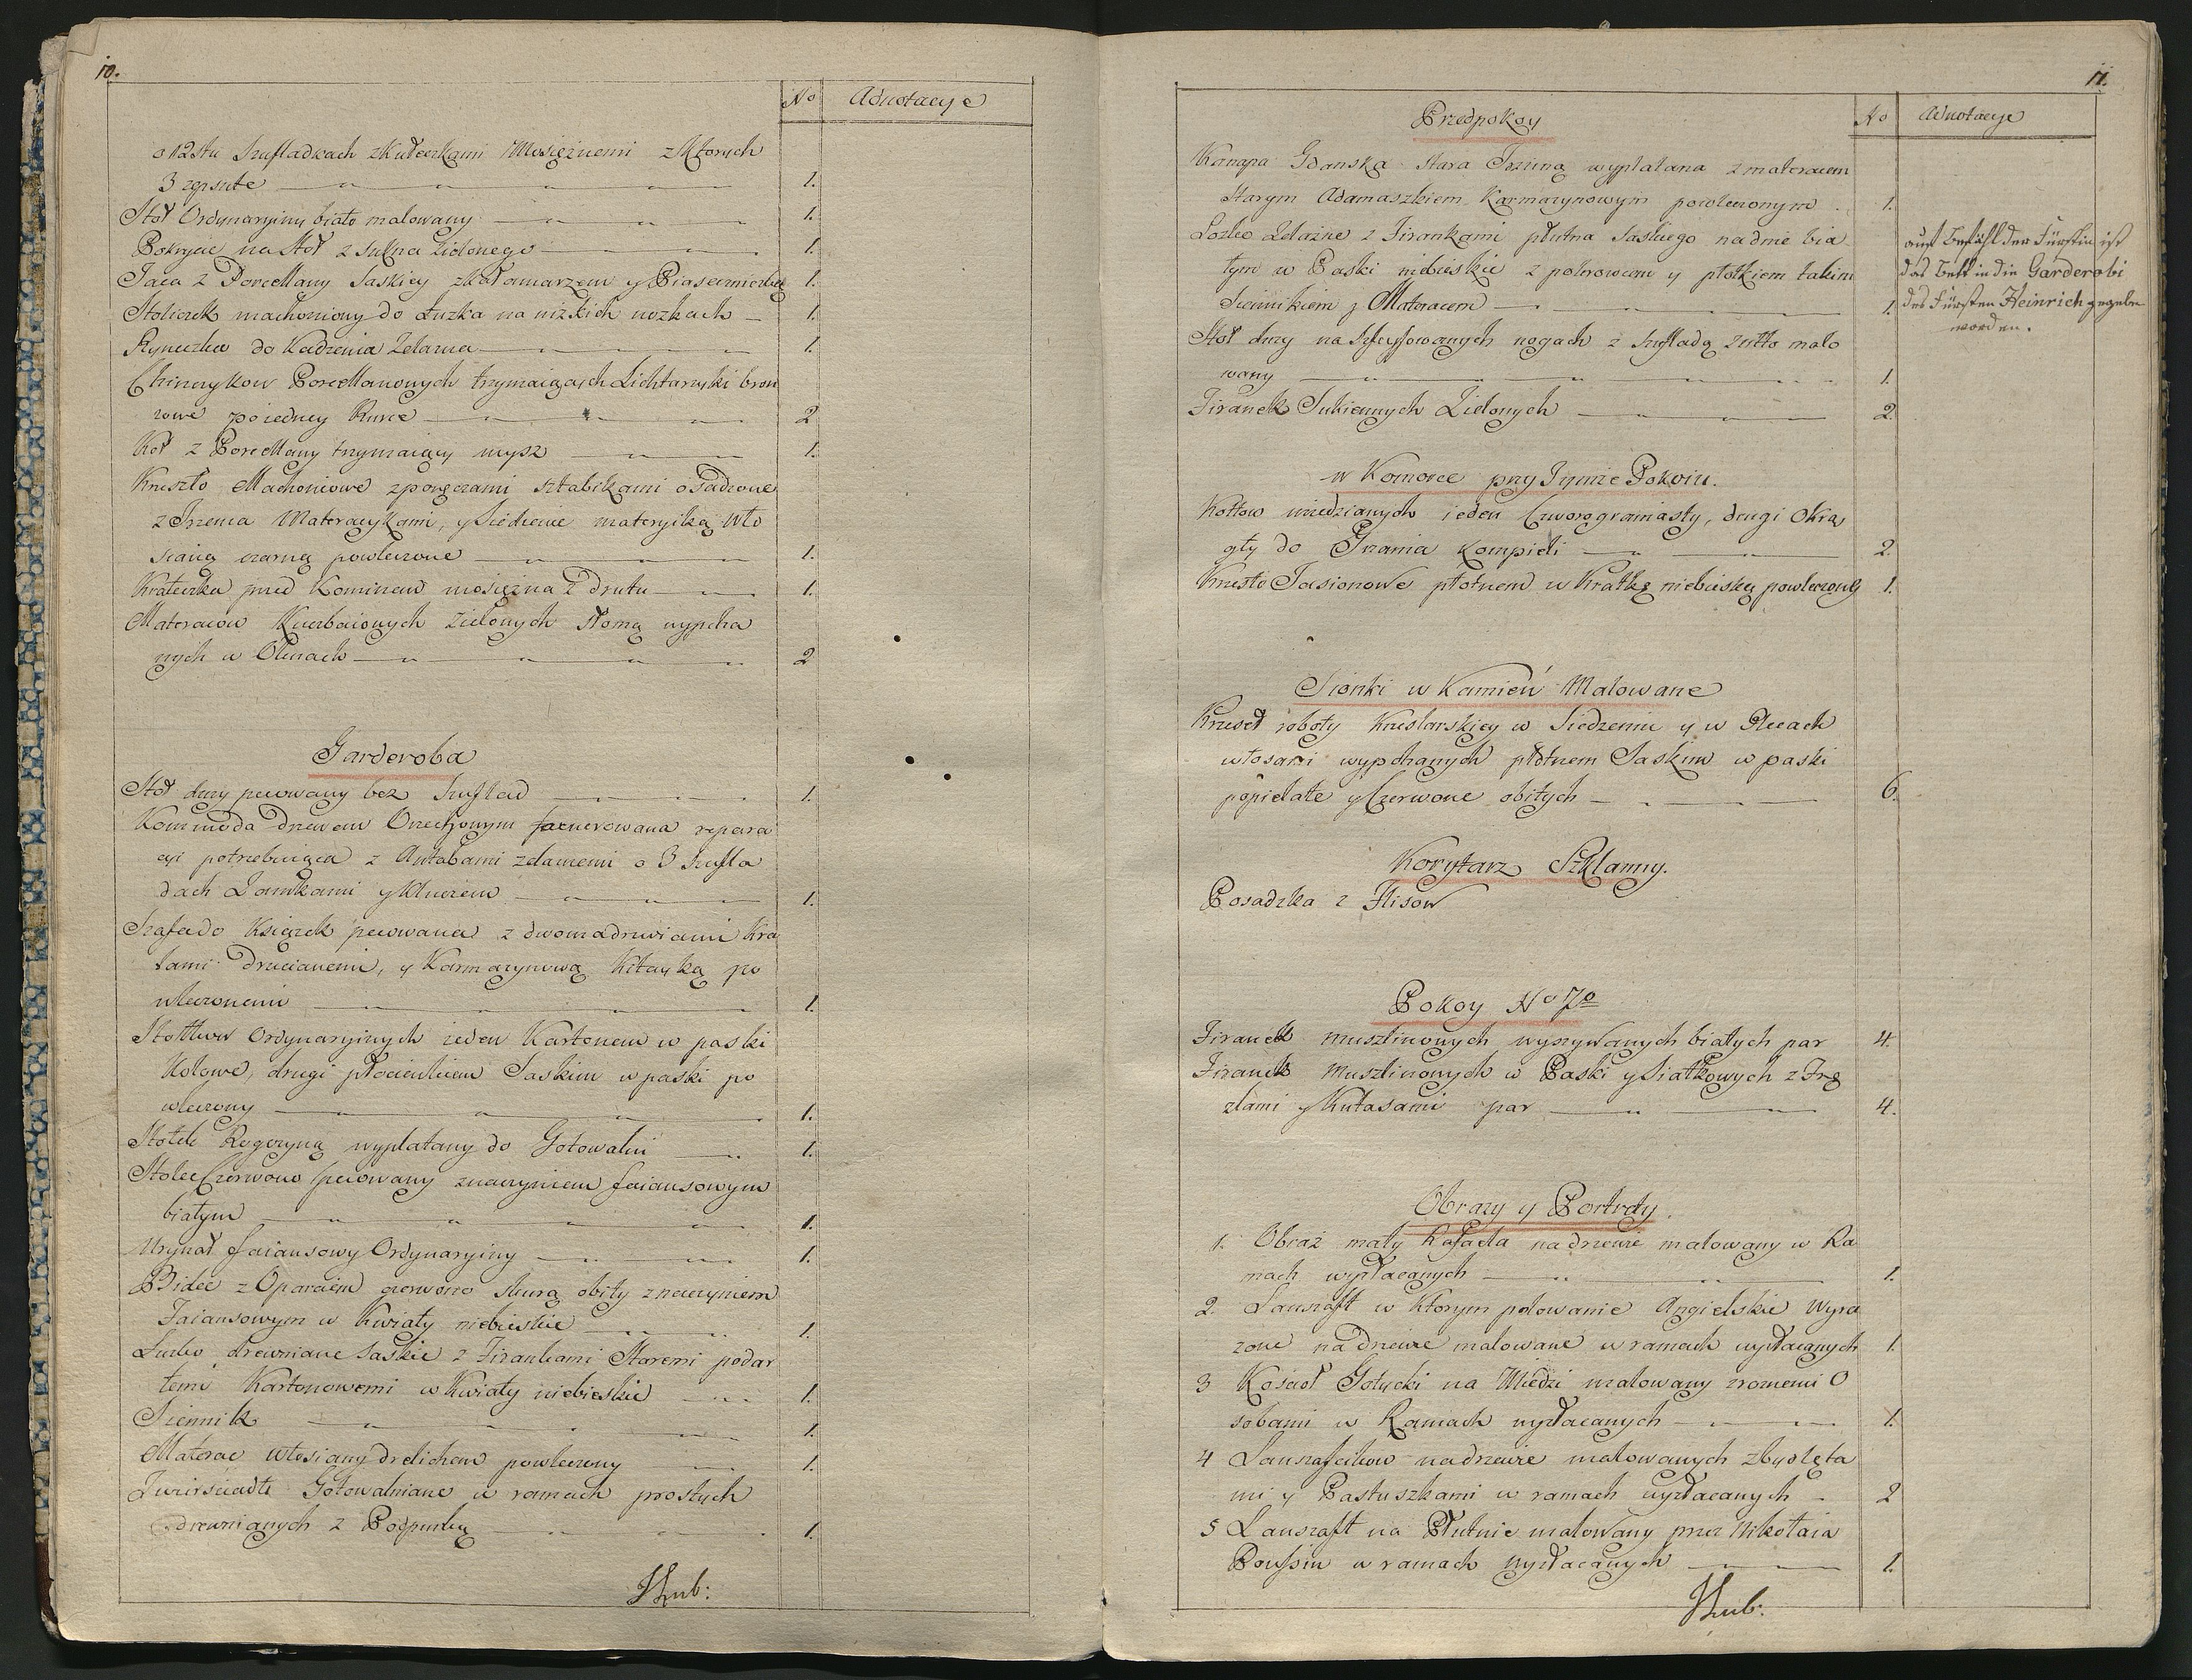 10.
No Adnotacye
o 12stu Szufladkach z Kułeczkami Mosiężnemi z Ktorych
3 zepsute 1.
Stoł Ordynaryiny biało malowany 1.
Pokrycie na Stoł z Sukna Zielonego 1.
Taca z Porcellany Saskiey z kałamarzem y Piaseczniczką 1.
Stoliczek machoniowy do Łużka na nizkich nozkach 1.
Ryneczka do Kadzenia Żelazna 1.
Chinczykow Porcellanowych trzymaiących Lichtarzyki bron
zowe po iedney Kurce 2
Kot z Porcellany trzymaiący mysz 1.
Krzeszło Machoniowe z poręczami sztabikami osadzone
z Trzema Materacykami, y Siedzenie materyiką Wło
sianą czarną powleczone 1.
Krateczka przed Kominem mosiężna z Drutu 1.
Materacow Kuczbaiowych Zielonych Słomą wypcha
nych w Oknach 2
Garderoba
Stoł duży pecowany bez Szuflad 1.
Kommoda Drzewem Orzechowym faenerowana repera
cyi potrzebuiąca z Antabami żelaznemi o 3 Szufla
dach Zamkami y Kluczem 1.
Szafa do Ksiązek pecowana z dwoma drzwiami Kra
tami Drucianemi, y Karmazynową Kitayką po
wleczonemi 1.
Stołkow Ordynaryinych ieden Kartonem w paski
Kołowe, drugi płocienkiem Saskim w paski po
wleczony 1.
Stołek Rogoryną wyplatany do Gotowalni 1.
Stolec Czerwono pecowany z naczyniem faiansowym
białym 1.
Urynał faiansowy Ordynaryiny 1.
Bidet z Oparciem czerwono Skurą obity z naczyniem
Faiansowym w Kwiaty niebieskie 1.
Łużko drewniane Saskie z Firankami Staremi podar
temi Kartonowemi w Kwiaty niebieskie 1.
Siennik 1.
Materac Włosiany drelichem powleczony 1.
Zwierściadło Gotowalniane w ramach prostych
drewnianych z Podpurką 1.
11.
Przedpokoy
No Adnotacye
Kanapa Gdanska Stara Trzciną wyplatana z materacem
Starym Adamaszkiem Karmazynowym powleczonym 1.
Łozko Żelazne z Firankami płutna Saskiego na dnie bia
łym w Paski niebieskie z pokrowcem y płotkiem takim
Siennikiem y Materacem 1.
auf Befehl der Fürstin ist
das Bett in die Garderobi
des Fürsten Heinrich gegeben
worden.
Stoł duzy na Szlifowanych nogach z Szufladą żułto malo
wany 1.
Firanek Sukiennych Zielonych 2
w Komorce przy Tymze Pokoiu.
Kotłow miedzianych ieden Czworograniasty, drugi Okrą
gły do Grzania Kompieli 2.
Krzesło Jasionowe płotnem w Kratkę niebieską powleczony 1.
Sionki w Kamień Malowane
Krzeseł roboty Krzeslarskiey w Siedzeniu y w Plecach
włosami wypchanych płotnem Saskim w paski
popielate y Czerwone obitych 6.
Korytarz Szklanny.
Posadzka z Flisow
Pokoy No 7o
Firanek muszlinowych wyszywanych białych par 4.
Firanek muszlinowych w Paski y Siatkowych z Frę
zlami y Kutasami par 4.
Obrazy y Portrety.
1. Obraz mały Rafaela na drzewie malowany w Ra
mach wyzłacanych 1.
2. Lanszaft w Ktorym polowanie Angielskie Wyra
zone na Drzewie malowane w ramach wyzłacanych 1.
3 Kościoł Gotycki na Miedzi malowany z roznemi O
sobami w Ramach wyzłacanych 1.
4 Lanszafcikow na drzewie malowanych z bydlęta
mi y Pastuszkami w ramach wyzłacanych 2
5 Lanszaft na Płutnie malowany przez Nikołaia
Poussin w ramach wyzłacanych 1.